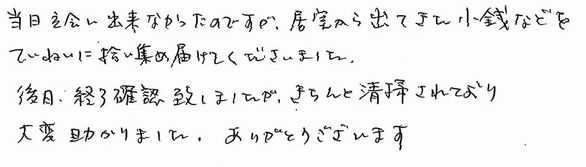 当日立会い出来なかったのですが、居室から出てきた小銭などを
ていねいに拾い集め届けてくださいました。
後日、終了確認致しましたが、きちんと清掃されており
大変助かりました。ありがとうございます